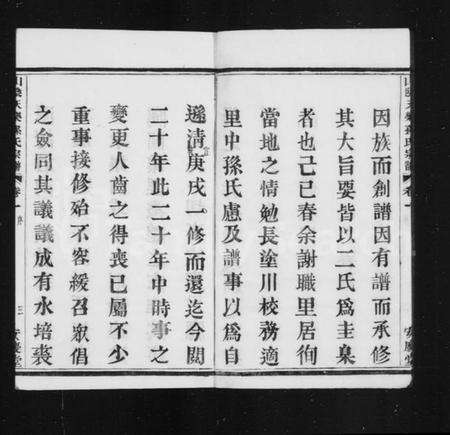 因族而創譜因有譜而承修
其大旨要皆以二氏爲圭臬
者也己巳春余謝職里居徇
當地之情勉長塗川校務適
里中孫氏慮及譜事以爲自
遜清庚戌一修而還迄今閱
二十年此二十年中時事之
變更人齒之得喪已屬不少
重事接修殆不容緩召眾倡
之僉同其議議成有水培裘
山陰天樂孫氏宗譜
卷一
序
三